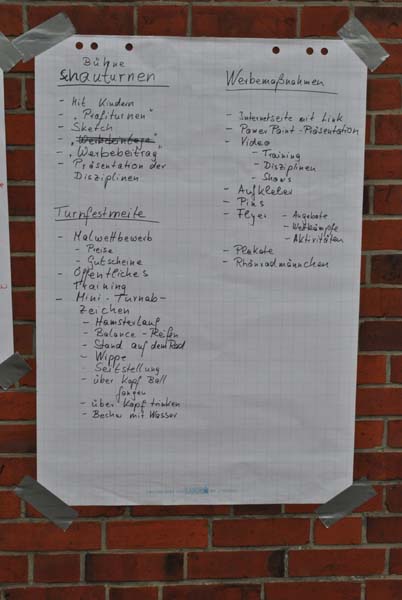 Bühne
Schauturnen
- Mit Kindern
- "Profiturnen"
- Sketch
- "Werbebeitrag"
- Präsentation der
Disziplinen
Turnfestmeile
- Malwettbewerb
- Preise
- Gutscheine
- Öffentliches
Training
- Mini-Turnab-
zeichen
- Hamsterlauf
- Balance-Reifen
- Stand auf dem Rad
- Wippe
- Seitstellung
- über Kopf Ball
fangen
- über Kopf trinken
- Becher mit Wasser
Werbemaßnahmen
- Internetseite mit Link
- PowerPoint-Präsentation
- Video
- Training
- Disziplinen
- Shows
- Aufkleber
- Pins
- Flyer - Angebote
- Wettkämpfe
- Aktivitäten
- Plakate
- Rhönradmännchen